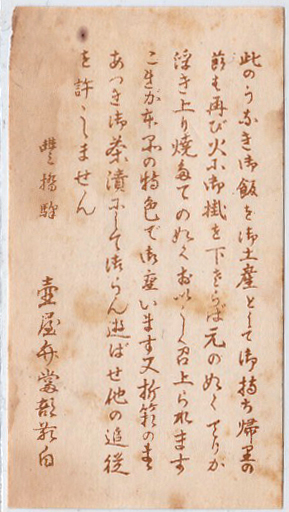 此のうなき御飯を御土産として御持ち帰里の
節も再び火に御掛を下さらば元の如くてりが
浮き上り焼立ての如くおいしく召上られます
これが本品の特色で御座います又折箱のまま
あつき御茶漬にして御らん遊ばせ他の追従
を許しません
豊橋駅
壺屋弁當部敬白